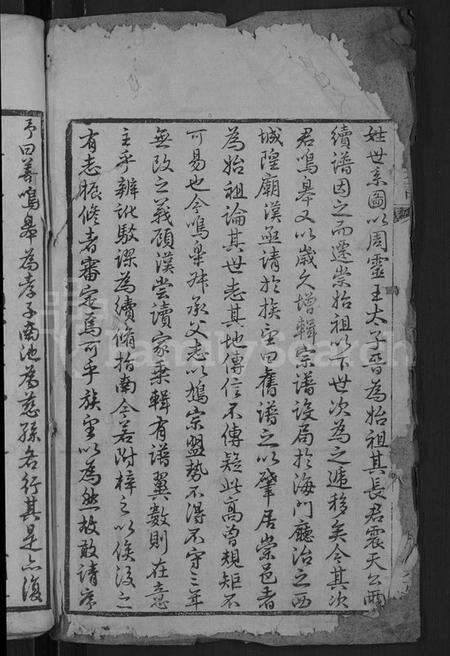 姓世系圖以周靈王太子晉為始祖其長君震天公兩
續譜因之而遷崇始祖以下世次為之遞移矣今其次
君鳴皋又以歲久增輯宗譜設局於海門廳治之西
城隍廟漢亟請於族望曰舊譜之以肇居崇邑者
為始祖論其世志其地傳信不傳疑此高曾規矩不
可易也今鳴皋舛承父志以鳩宗盟勢不得不守三年
無改之義顧漢嘗讀家乘輯有譜翼數則在意
主乎辨訛駁謬為續脩指南今若附梓之以俟後之
有志賑脩者審定焉可乎族望以為然故敢請字
予曰善鳴皋為孝子南池為慈孫各行其是亦復
FamilySearch